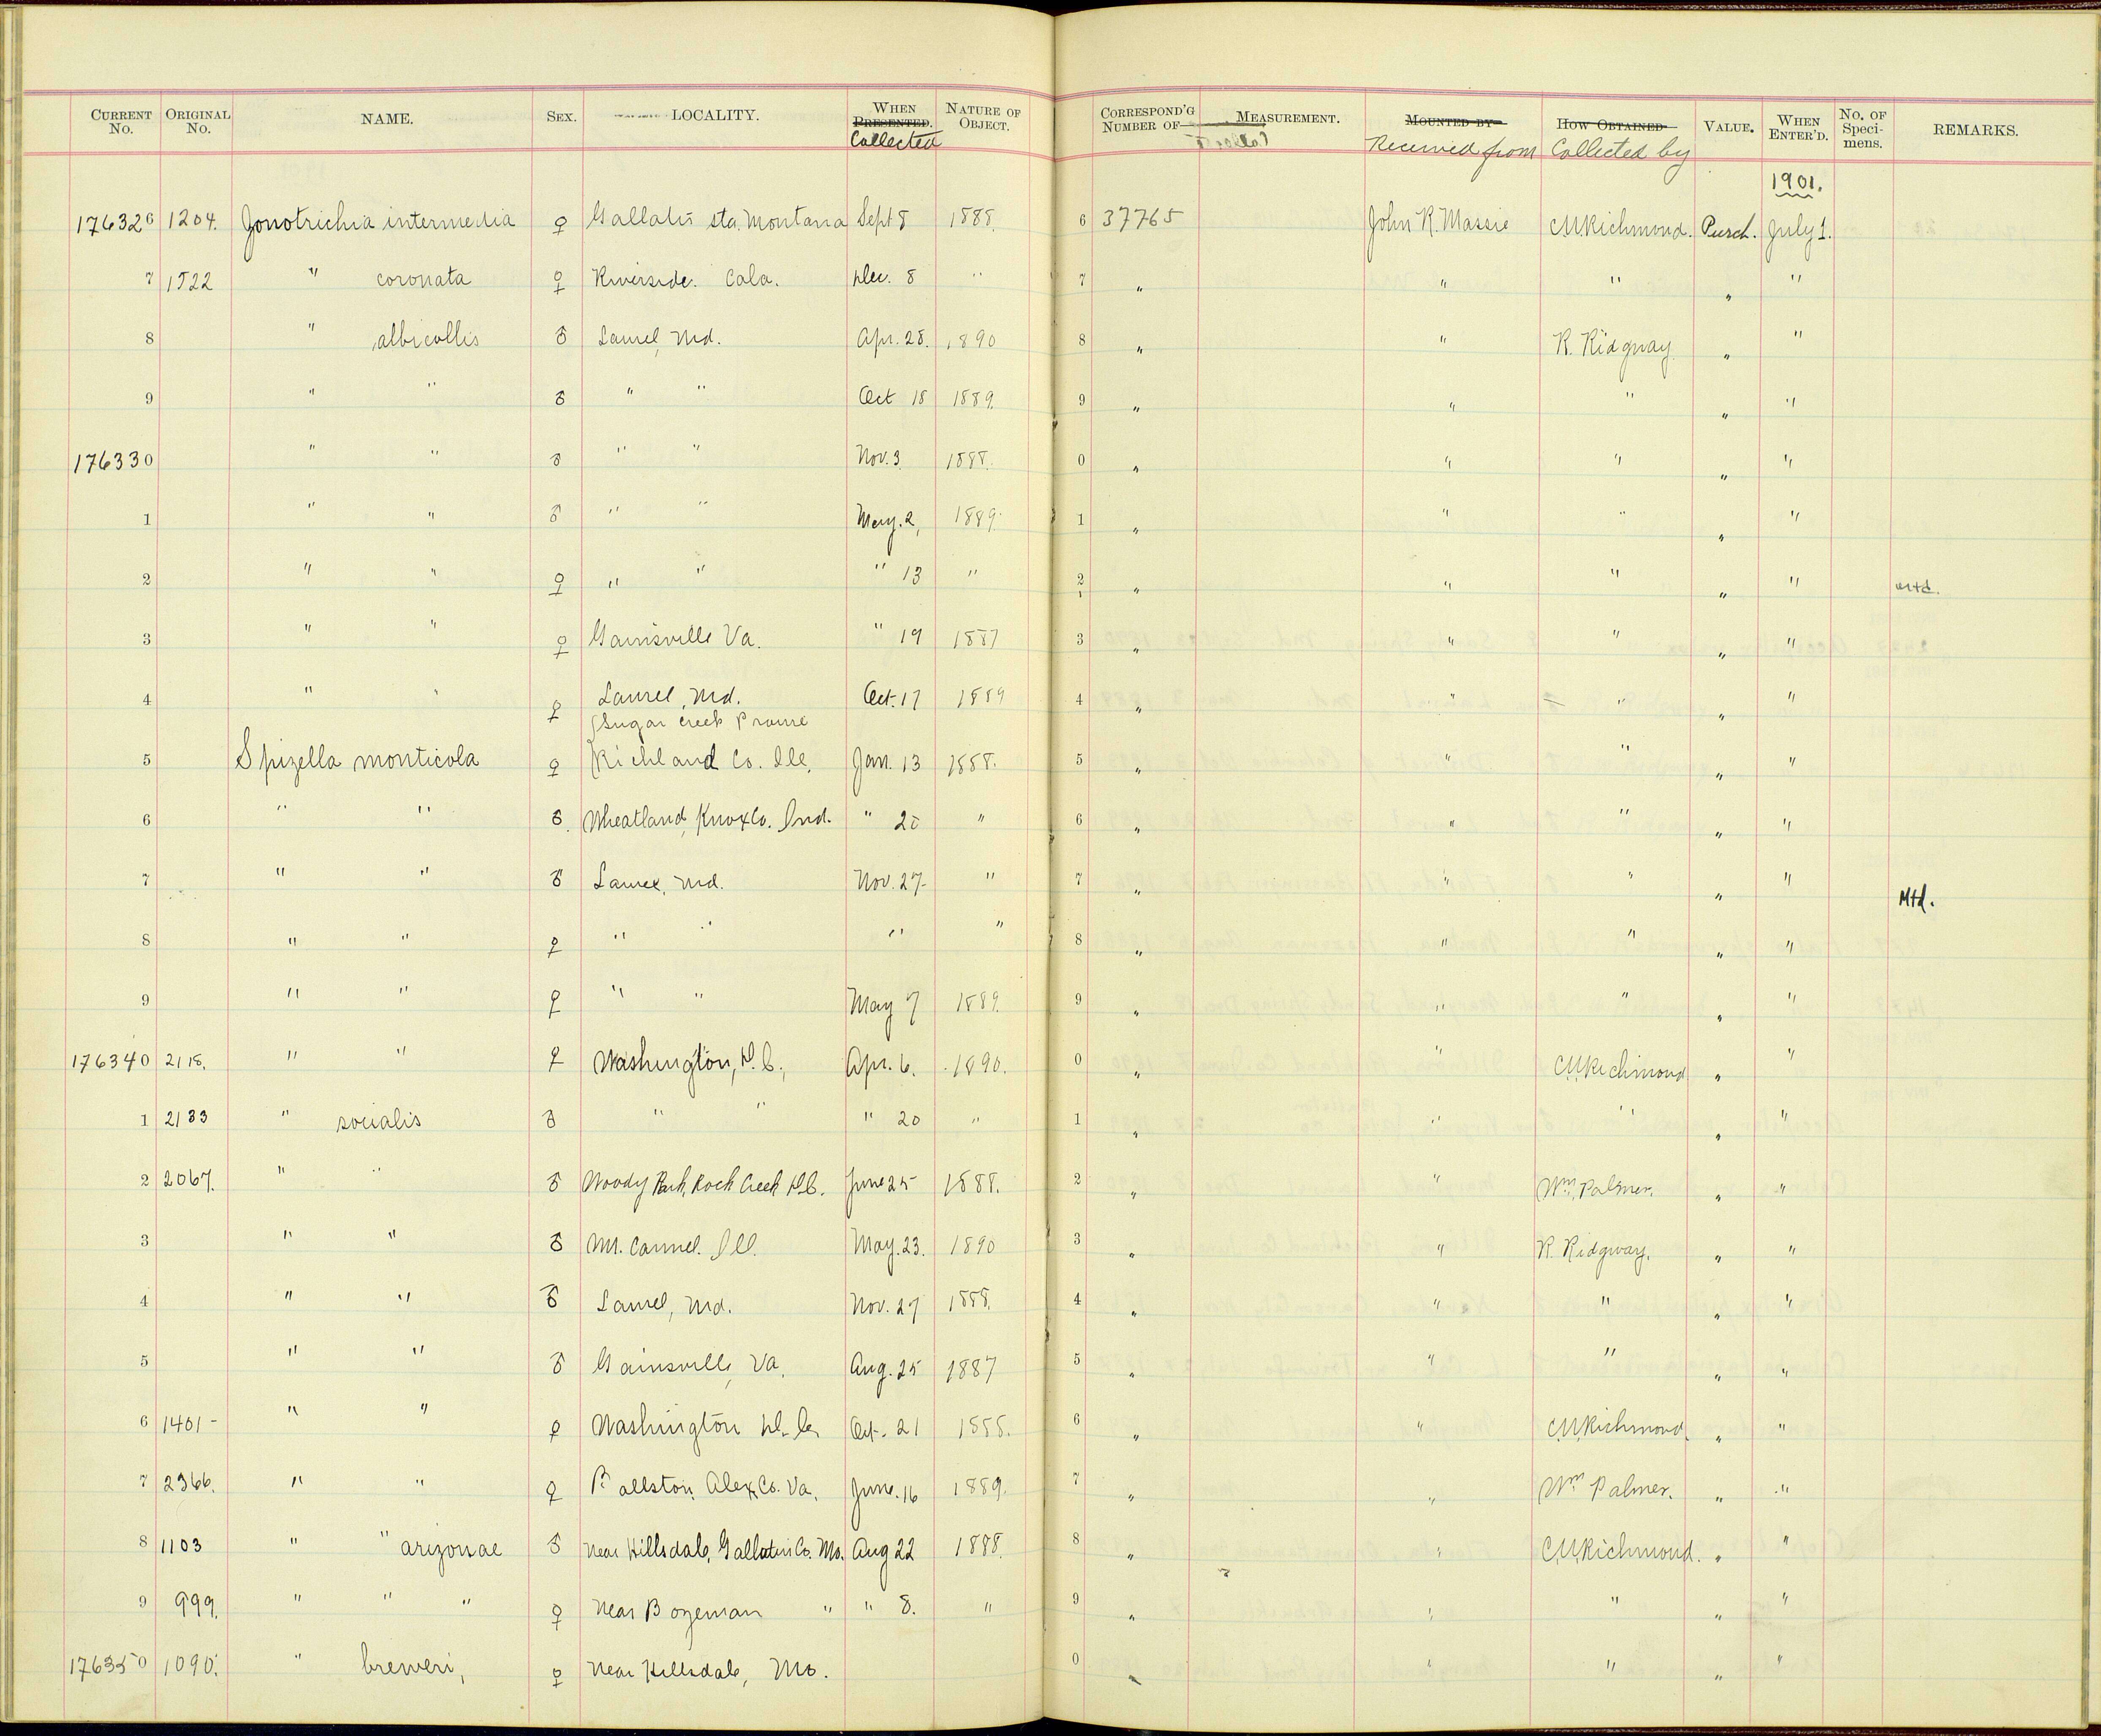 CURRENT No. ORIGINAL No. NAME. SEX. LOCALITY. WHEN PRESENTED. Collected NATURE OF OBJECT. CORRESPOND'G NUMBER OF MEASUREMENT. MOUNTED BY Received from HOW OBTAINED Collected by VALUE. WHEN ENTER'D. No. OF Speci-mens. REMARKS.
1901.
176326 1204. Zonotrichia intermedia ♀ Gallatin sta. Montana Sept 8 1888. 6 37765 John R. Massie CWRichmond. Purch. July 1.
7 1522 " coronata ♀ Riverside. Cala. Dec. 8 " 7 " " " " "
8 " albicollis ♂ Laurel, Md. Apr. 28. 1890 8 " " R. Ridgway " "
9 " " ♂ " " Oct 18 1889. 9 " " " " "
176330 " " ♂ " " Nov. 3 1888. 0 " " " " "
1 " " ♂ " " May. 2, 1889. 1 " " " " "
2 " " ♀ " " " 13 " 2 " " " " " Mtd.
3 " " ♀ Gainsville Va. " 19 1887 3 " " " " "
4 " " ♀ Laurel, Md. Oct. 17 1889 4 " " " " "
Sugar Creek Prairie
5 Spizella monticola ♀ Richland Co. Ill. Jan. 13 1888. 5 " " " " "
6 " " ♂. Wheatland, Knox Co. Ind. " 20 " 6 " " " " "
7 " " ♂ Laurel, Md. Nov. 27 " 7 " " " " " Mtd.
8 " " ♀ " " " " 8 " " " " "
9 " " ♀ " " May 7 1889. 9 " " " " "
176340 2118. " " ♀ Washington, D.C., Apr. 6. 1890. 0 " " CWRichmond " "
1 2133 " socialis ♂ " " " 20 " 1 " " " " "
2 2067. " " ♂ Woody Park, Rock Creek D.C. June 25 1888. 2 " " Wm. Palmer. " "
3 " " ♂ Mt. Carmel. Ill. May. 23. 1890 3 " " R. Ridgway. " "
4 " " ♂ Laurel, Md. Nov. 27 1888. 4 " " " " "
5 " " ♂ Gainsville, Va. Aug. 25 1887 5 " " " " "
6 1401- " " ♀ Washington D.C. Oct. 21 1888. 6 " " CWRichmond. " "
7 2366. " " ♀ Ballston, Alex. Co. Va. June. 16 1889. 7 " " Wm Palmer. " "
8 1103 " " arizonae ♂ near Hillsdale, Gallatin Co. Mo. Aug 22 1888. 8 " " CWRichmond. " "
9 999. " " " ♀ near Bozeman " " 8. " 9 " " " " "
176350 1090. " breweri, ♀ near Hillsdale, Mo. 0 " " " " "